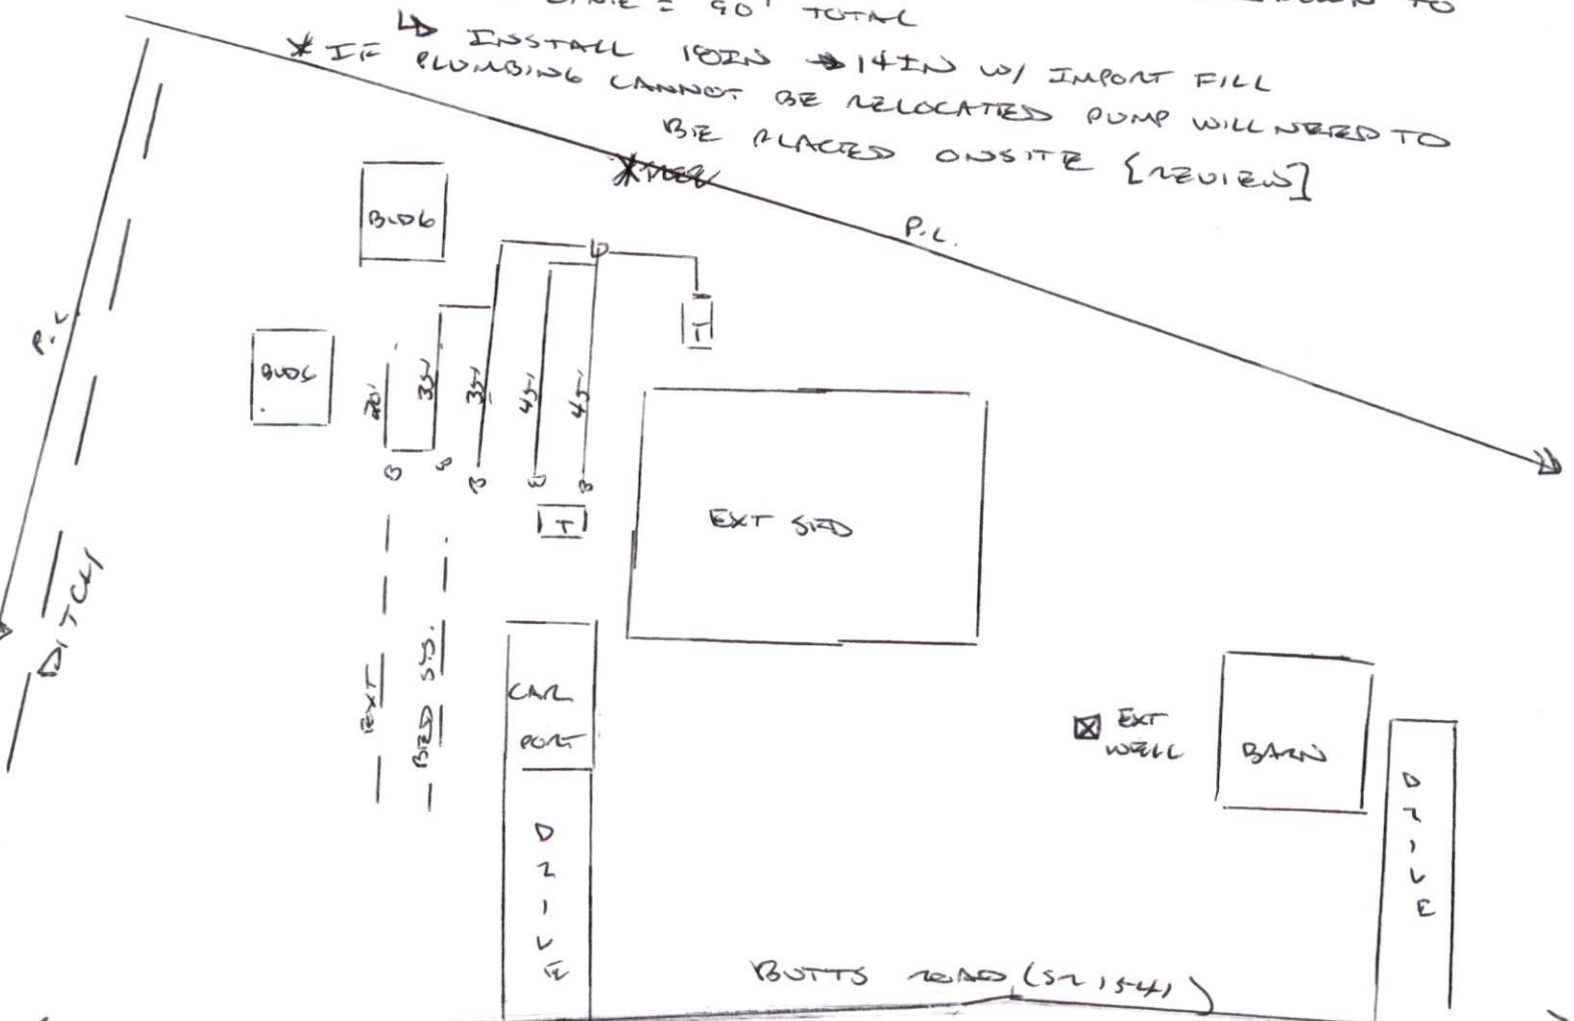 90' TOTAL
↳ INSTALL 18IN → 14IN W/ IMPORT FILL
* IF PLUMBING CANNOT BE RELOCATED PUMP WILL NEED TO
BE PLACED ONSITE [REVIEW]
P.L.
BLDG
P.L.
T
BLDG
20'
35'
35'
45'
45'
B
B
B
B
B
T
EXT SFD
DITCH
EXT
BED SYS.
CAR
PORT
EXT
WELL
BARN
DRIVE
DRIVE
BUTTS ROAD (SR 1541)